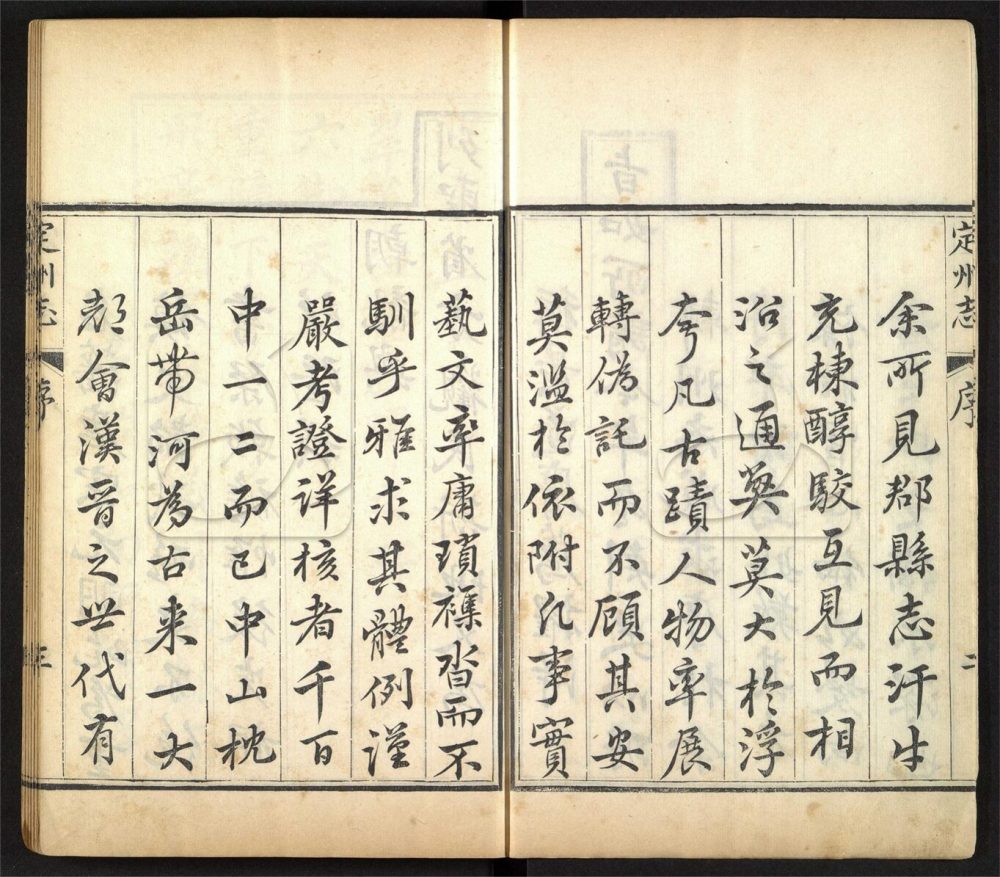 定州志 序 二
余所見郡縣志汗牛
充棟醇駮互見而相
沿之通獘莫大於浮
夸凡古蹟人物率展
轉偽託而不顧其安
莫濫於依附凡事實
藝文率庸瑣襍沓而不
馴乎雅求其體例謹
嚴考證詳核者千百
中一二而已中山枕
岳帶河為古来一大
都會漢晉之世代有
定州志 序 三